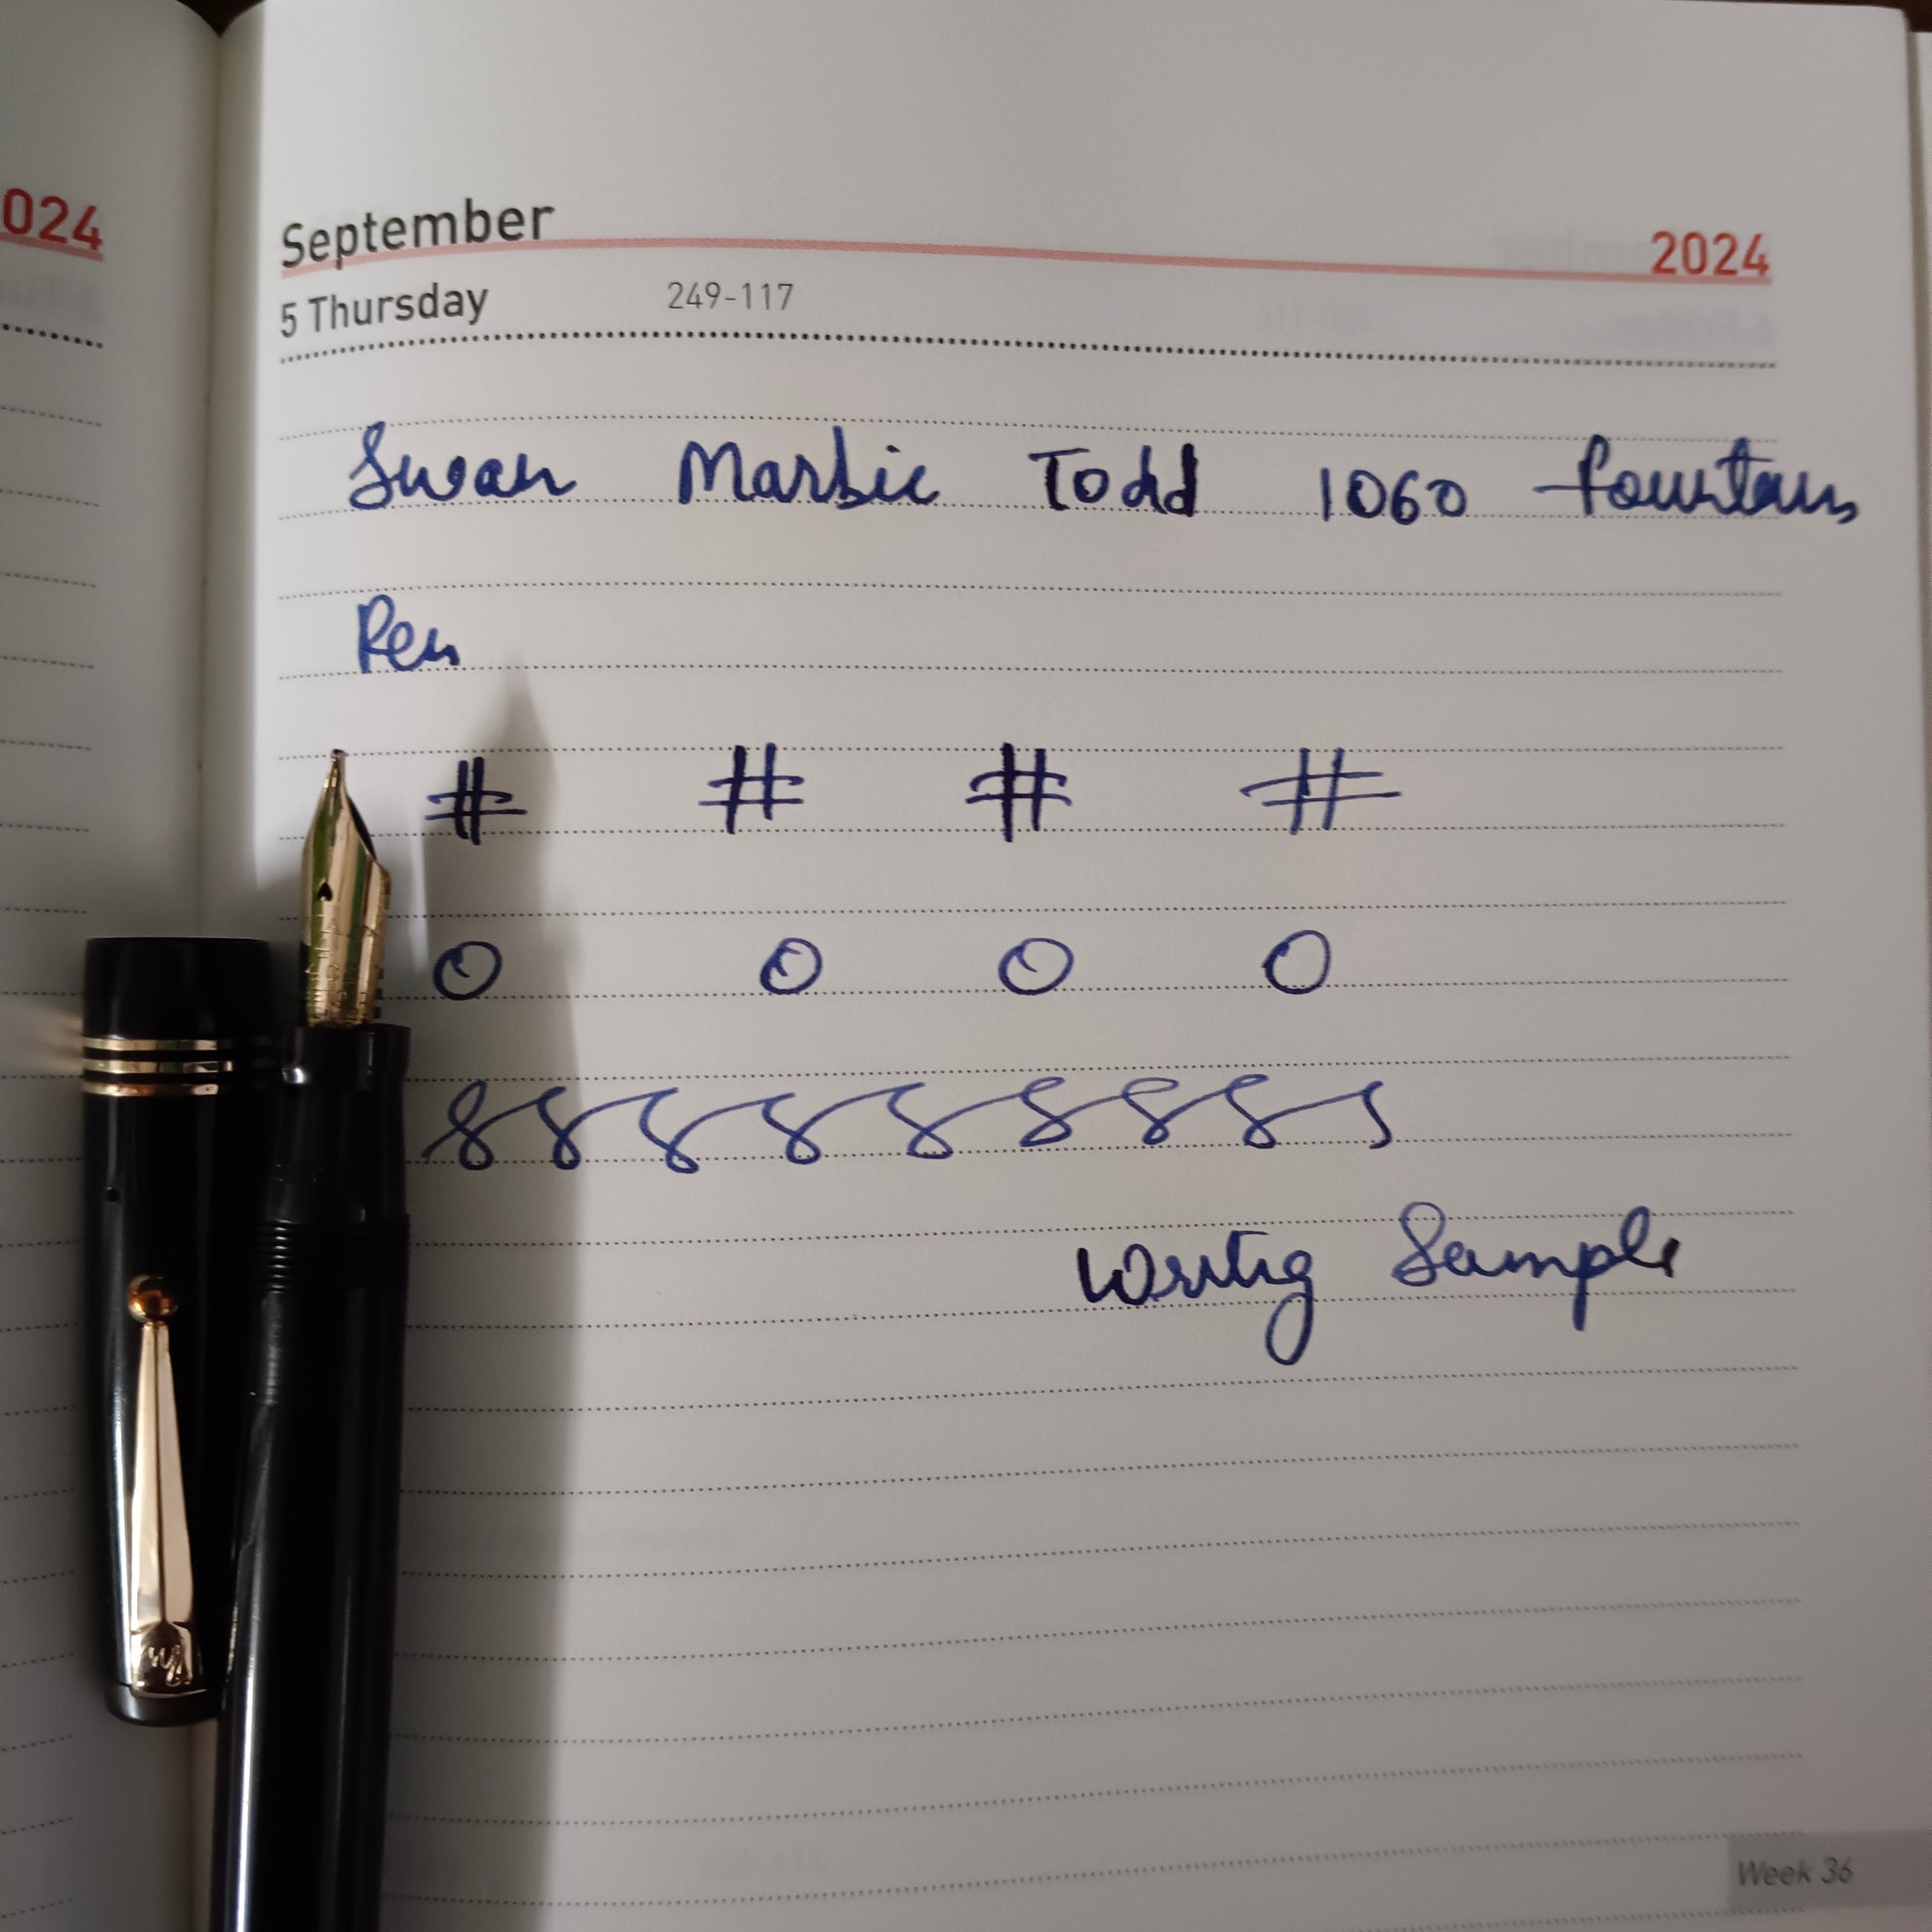 024
September 2024
5 Thursday 249-117
Swan Marbie Todd 1060 fountain
Pen
# # # #
O O O O
88888888s
Writig Sample
Week 36